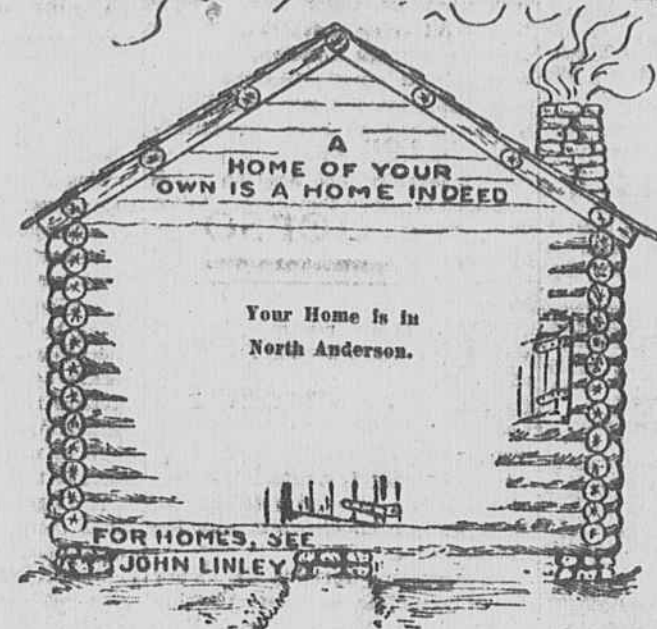 A
HOME OF YOUR
OWN IS A HOME INDEED
Your Home is in
North Anderson.
FOR HOMES, SEE
JOHN LINLEY